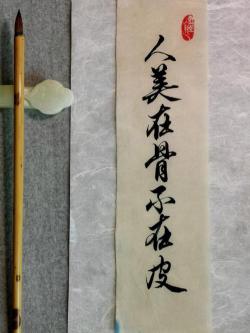 人美在骨不在皮